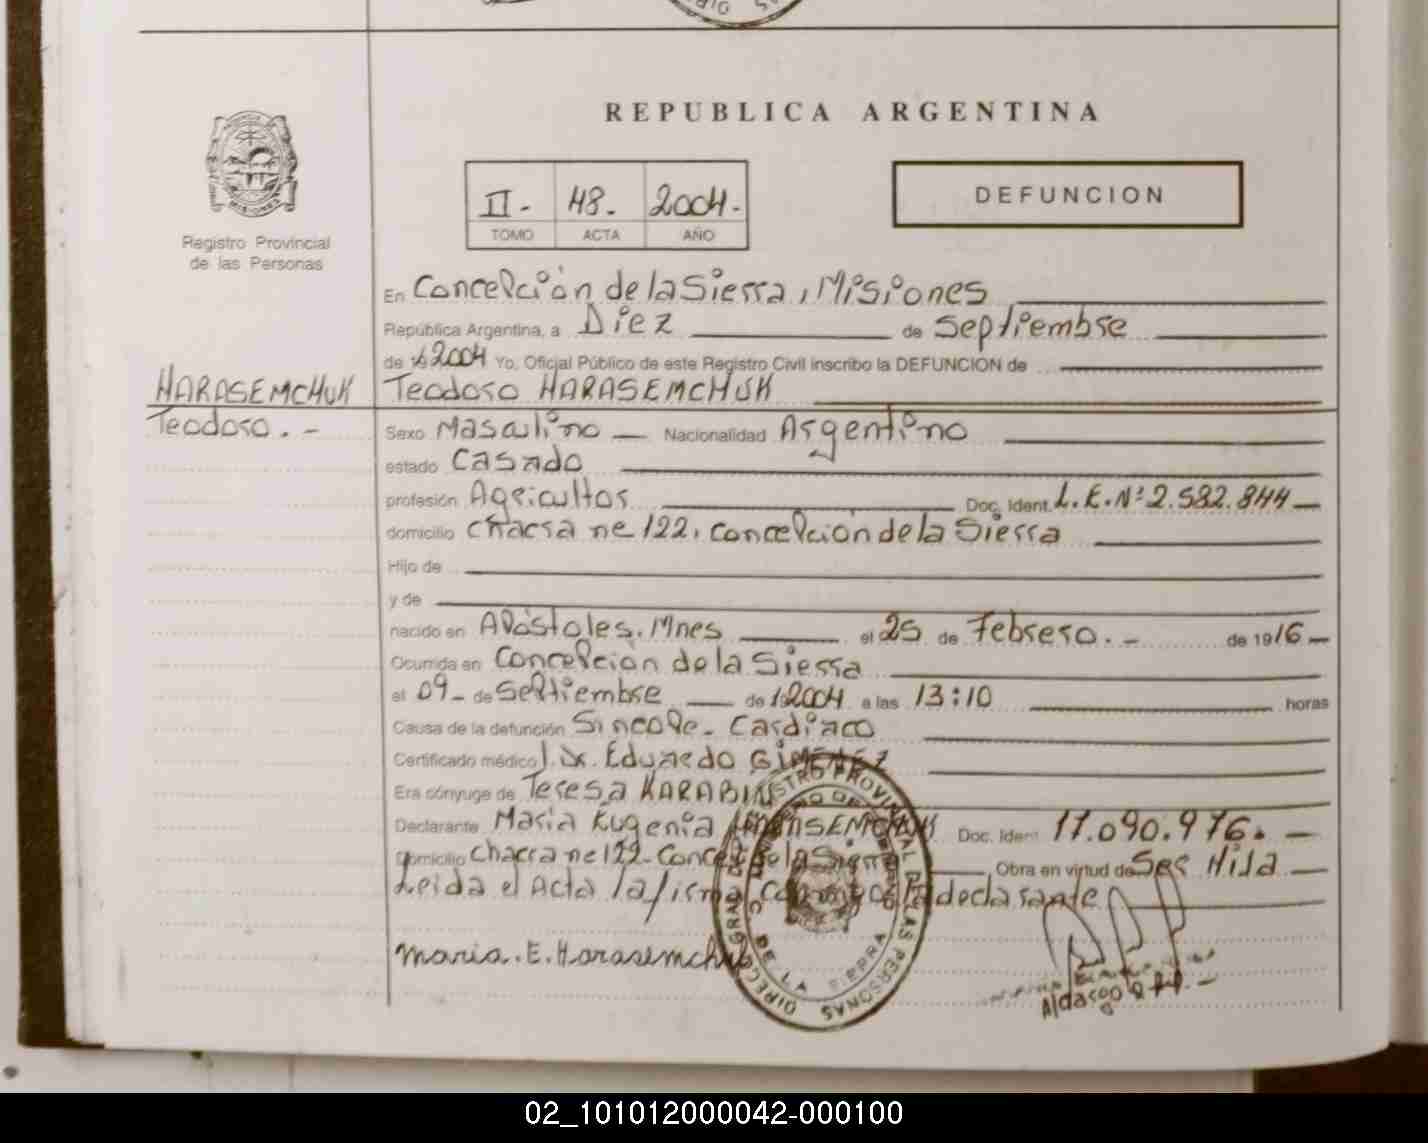 REPUBLICA ARGENTINA
II- 48- 2004-
TOMO ACTA AÑO
DEFUNCION
Registro Provincial
de las Personas
En Concepción de la Sierra, Misiones
República Argentina, a Diez de Septiembre
de 2004 Yo, Oficial Público de este Registro Civil inscribo la DEFUNCION de
HARASEMCHUK
Teodoro HARASEMCHUK
Teodoro. -
Sexo Masculino Nacionalidad Argentino
estado Casado
profesión Agricultor Doc. Ident. L.E.Nº 2.582.844
domicilio chacra ne 122, Concepción de la Sierra
Hijo de
y de
nacido en Apóstoles. Mnes el 25 de Febrero. - de 1916
Ocurrida en Concepción de la Sierra
el 09- de Septiembre de 2004 a las 13:10 horas
Causa de la defunción Sincope. Cardiaco
Certificado médico Dr. Eduardo GIMENEZ
Era cónyuge de Teresa KARABIN
Declarante Maria Eugenia HARASEMCHUK Doc. Ident 17.090.976. -
Domicilio Chacra ne 122- Concep de la Sierra Obra en virtud de Ser Hija
Leida el Acta la firma conmigo la declarante
maria. E. Harasemchuk
DE LA SIERRA
02_101012000042-000100